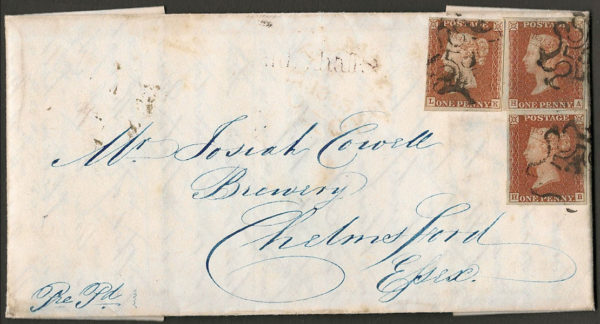 POSTAGE
ONE PENNY
L K
POSTAGE
ONE PENNY
H A
POSTAGE
ONE PENNY
H B
Mr. Josiah Cowell
Brewery
Chelmsford
Essex.
Pre Pd